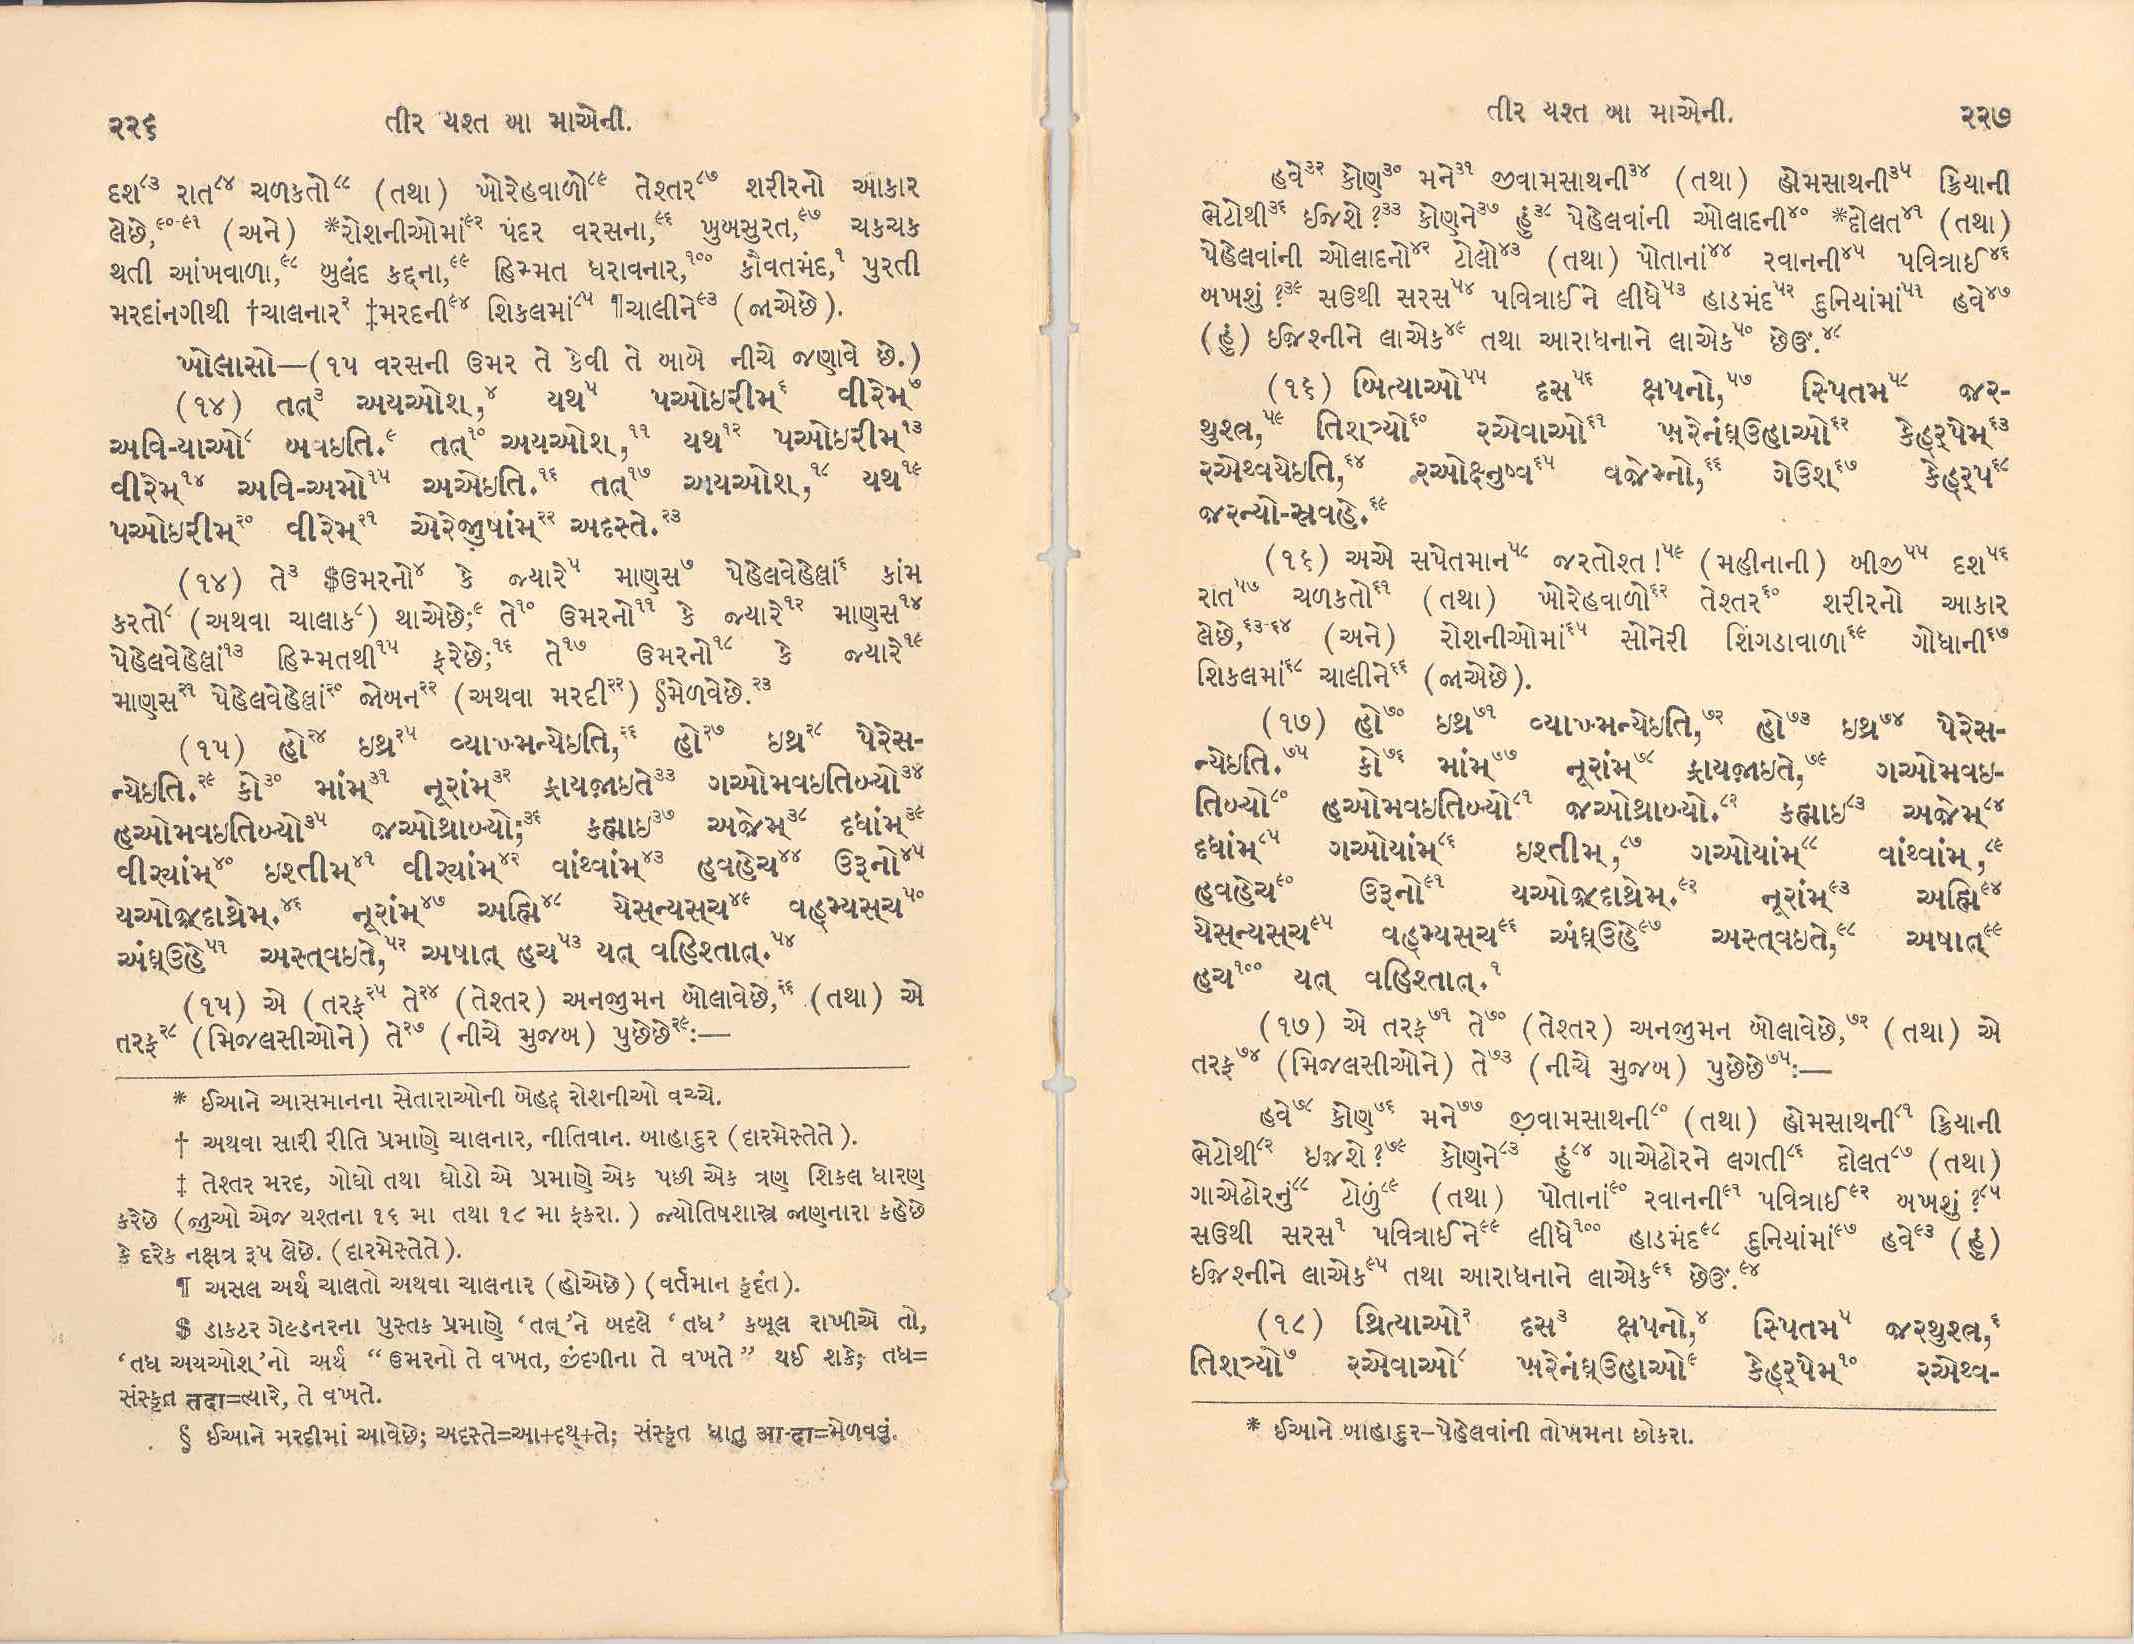 ૨૨૬ તીર યશ્ત બા માએની.
દશ૮૩ રાત૮૪ ચળકતો૮૮ (તથા) ખોરેહવાળો૮૯ તેશ્તર૮૭ શરીરનો આકાર
લેછે,૯૦-૯૧ (અને) *રોશનીઓમાં૯૨ પંદર વરસના,૯૬ ખુબસુરત,૯૭ ચકચક
થતી આંખવાળા,૯૮ બુલંદ કદ્દના,૯૯ હિમ્મત ધરાવનાર,૧૦૦ કૌવતમંદ,૧ પુરતી
મરદાંનગીથી †ચાલનાર૨ ‡મરદની૯૪ શિકલમાં૯૫ ¶ચાલીને૯૩ (જાએછે).
ખોલાસો—(૧૫ વરસની ઉમર તે કેવી તે બાબે નીચે જણાવે છે.)
(૧૪) તત્૩ અયઓશ,૪ યથ૫ પઓઇરીમ્૬ વીરેમ્૭
અવિ-યાઓ૮ બવઇતિ.૯ તત્૧૦ અયઓશ,૧૧ યથ૧૨ પઓઇરીમ્૧૩
વીરેમ્૧૪ અવિ-અમો૧૫ અએઇતિ.૧૬ તત્૧૭ અયઓશ,૧૮ યથ૧૯
પઓઇરીમ્૨૦ વીરેમ્૨૧ એરેજીષાંમ્૨૨ અદસ્તે.૨૩
(૧૪) તે૩ $ઉમરનો૪ કે જ્યારે૫ માણસ૭ પેહેલવેહેલાં૬ કાંમ
કરતો૮ (અથવા ચાલાક૮) થાએછે;૯ તે૧૦ ઉમરનો૧૧ કે જ્યારે૧૨ માણસ૧૪
પેહેલવેહેલાં૧૩ હિમ્મતથી૧૫ ફરેછે;૧૬ તે૧૭ ઉમરનો૧૮ કે જ્યારે૧૯
માણસ૨૧ પેહેલવેહેલાં૨૦ જોબન૨૨ (અથવા મરદી૨૨) §મેળવેછે.૨૩
(૧૫) હો૨૪ ઇથ્ર૨૫ વ્યાખ્મન્યેઇતિ,૨૬ હો૨૭ ઇથ્ર૨૮ પેરેસ-
ન્યેઇતિ.૨૯ કો૩૦ માંમ્૩૧ નૂરાંમ્૩૨ ફ્રાયજાઇતે૩૩ ગઓમવઇતિબ્યો૩૪
હઓમવઇતિબ્યો૩૫ જઓથ્રાબ્યો;૩૬ કહ્માઇ૩૭ અજેમ્૩૮ દધાંમ્૩૯
વીર્યાંમ્૪૦ ઇશ્તીમ્૪૧ વીર્યાંમ્૪૨ વાંથ્વાંમ્૪૩ હવહેચ૪૪ ઉરૂનો૪૫
યઓજ્દાથ્રેમ્.૪૬ નૂરાંમ્૪૭ અહ્મિ૪૮ યેસ્ન્યસ્ચ૪૯ વહ્મ્યસ્ચ૫૦
અંઘ્ઉહે૫૧ અસ્ત્વઇતે,૫૨ અષાત્ હચ૫૩ યત્ વહિશ્તાત્.૫૪
(૧૫) એ (તરફ૨૫ તે૨૪ (તેશ્તર) અનજીમન બોલાવેછે,૨૬ (તથા) એ
તરફ૨૮ (મિજલસીઓને) તે૨૭ (નીચે મુજબ) પુછેછે૨૯:—
* ઈઆને આસમાનના સેતારાઓની બેહદ્દ રોશનીઓ વચ્ચે.
† અથવા સારી રીતિ પ્રમાણે ચાલનાર, નીતિવાન. બાહાદુર (દારમેસ્તેતે).
‡ તેશ્તર મરદ, ગોધો તથા ઘોડો એ પ્રમાણે એક પછી એક ત્રણ શિકલ ધારણ
કરેછે (જીઓ એજ યશ્તના ૧૬ મા તથા ૧૮ મા ફકરા.) જ્યોતિષશાસ્ત્ર જાણનારા કહેછે
કે દરેક નક્ષત્ર રૂપ લેછે. (દારમેસ્તેતે).
¶ અસલ અર્થ ચાલતો અથવા ચાલનાર (હોએછે) (વર્તમાન કૃદંત).
$ ડાકટર ગેલ્ડનરના પુસ્તક પ્રમાણે ‘તત્’ને બદલે ‘તધ’ કબૂલ રાખીએ તો,
‘તધ અયઓશ્’નો અર્થ “ઉમરનો તે વખત, જીંદગીના તે વખતે” થઈ શકે; તધ=
સંસ્કૃત तदा=ત્યારે, તે વખતે.
§ ઈઆને મરદીમાં આવેછે; અદસ્તે=આ+દથ્+તે; સંસ્કૃત ધાતુ आ-दा=મેળવવું.
તીર યશ્ત બા માએની. ૨૨૭
હવે૩૨ કોણ૩૦ મને૩૧ જીવામસાથની૩૪ (તથા) હોમસાથની૩૫ ક્રિયાની
ભેટોથી૩૬ ઇજિશે?૩૩ કોણને૩૭ હું૩૮ પેહેલવાંની ઓલાદની૪૦ *દોલત૪૧ (તથા)
પેહેલવાંની ઓલાદનો૪૨ ટોલો૪૩ (તથા) પોતાનાં૪૪ રવાનની૪૫ પવિત્રાઈ૪૬
બખશું?૩૯ સઉથી સરસ૫૪ પવિત્રાઈને લીધે૫૩ હાડમંદ૫૨ દુનિયાંમાં૫૧ હવે૪૭
(હું) ઇજશ્નીને લાએક૪૯ તથા આરાધનાને લાએક૫૦ છેઊં.૪૮
(૧૬) બિત્યાઓ૫૫ દસ૫૬ ક્ષપનો,૫૭ સ્પિતમ૫૮ જર-
થુશ્ત્ર,૫૯ તિશ્ત્ર્યો૬૦ રએવાઓ૬૧ ખ઼રેનંઘ્ઉહાઓ૬૨ કેહ્ર્પેમ્૬૩
રએથ્વયેઇતિ,૬૪ રઓક્ષ્નુષ્વ૬૫ વજેમ્નો,૬૬ ગેઉશ્૬૭ કેહ્ર્પ૬૮
જરન્યો-સ્રવહે.૬૯
(૧૬) અએ સપેતમાન૫૮ જરતોશ્ત!૫૯ (મહીનાની) બીજી૫૫ દશ૫૬
રાત૫૭ ચળકતો૬૧ (તથા) ખોરેહવાળો૬૨ તેશ્તર૬૦ શરીરનો આકાર
લેછે,૬૩-૬૪ (અને) રોશનીઓમાં૬૫ સોનેરી શિંગડાવાળા૬૯ ગોધાની૬૭
શિકલમાં૬૮ ચાલીને૬૬ (જાએછે).
(૧૭) હો૭૦ ઇથ્ર૭૧ વ્યાખ્મન્યેઇતિ,૭૨ હો૭૩ ઇથ્ર૭૪ પેરેસ-
ન્યેઇતિ.૭૫ કો૭૬ માંમ્૭૭ નૂરાંમ્૭૮ ફ્રાયજાઇતે,૭૯ ગઓમવઇ-
તિબ્યો૮૦ હઓમવઇતિબ્યો૮૧ જઓથ્રાબ્યો.૮૨ કહ્માઇ૮૩ અજેમ્૮૪
દધાંમ્૮૫ ગઓયાંમ્૮૬ ઇશ્તીમ્,૮૭ ગઓયાંમ્૮૮ વાંથ્વાંમ્,૮૯
હવહેચ૯૦ ઉરૂનો૯૧ યઓજ્દાથ્રેમ્.૯૨ નૂરાંમ્૯૩ અહ્મિ૯૪
યેસ્ન્યસ્ચ૯૫ વહ્મ્યસ્ચ૯૬ અંઘ્ઉહે૯૭ અસ્ત્વઇતે,૯૮ અષાત્૯૯
હચ૧૦૦ યત્ વહિશ્તાત્.૧
(૧૭) એ તરફ૭૧ તે૭૦ (તેશ્તર) અનજીમન બોલાવેછે,૭૨ (તથા) એ
તરફ૭૪ (મિજલસીઓને) તે૭૩ (નીચે મુજબ) પુછેછે૭૫:—
હવે૭૮ કોણ૭૬ મને૭૭ જીવામસાથની૮૦ (તથા) હોમસાથની૮૧ ક્રિયાની
ભેટોથી૮૨ ઇજશે?૭૯ કોણને૮૩ હું૮૪ ગાએઢોરને લગતી૮૬ દોલત૮૭ (તથા)
ગાએઢોરનું૮૮ ટોળું૮૯ (તથા) પોતાનાં૯૦ રવાનની૯૧ પવિત્રાઈ૯૨ બખશું?૮૫
સઉથી સરસ૧ પવિત્રાઈને૯૯ લીધે૧૦૦ હાડમંદ૯૮ દુનિયાંમાં૯૭ હવે૯૩ (હું)
ઇજશ્નીને લાએક૯૫ તથા આરાધનાને લાએક૯૬ છેઊં.૯૪
(૧૮) થ્રિત્યાઓ૨ દસ૩ ક્ષપનો,૪ સ્પિતમ૫ જરથુશ્ત્ર,૬
તિશ્ત્ર્યો૭ રએવાઓ૮ ખ઼રેનંઘ્ઉહાઓ૯ કેહ્ર્પેમ્૧૦ રએથ્વ-
* ઈઆને બાહાદુર-પેહેલવાંની તોખમના છોકરા.